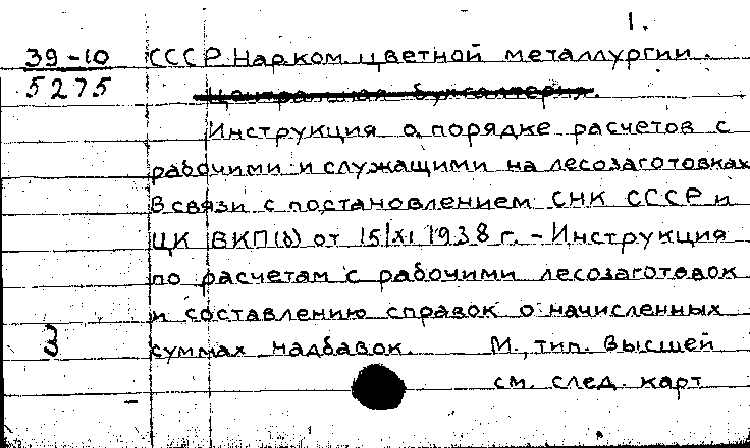 1.
39-10 СССР. Нарком. цветной металлургии.
5275 Центральная бухгалтерия.
Инструкция о порядке расчетов с
рабочими и служащими на лесозаготовках
в связи с постановлением СНК СССР и
ЦК ВКП(б) от 15/XI 1938 г. - Инструкция
по расчетам с рабочими лесозаготовок
и составлению справок о начисленных
3 суммах надбавок. М., тип. Высшей
см. след. карт